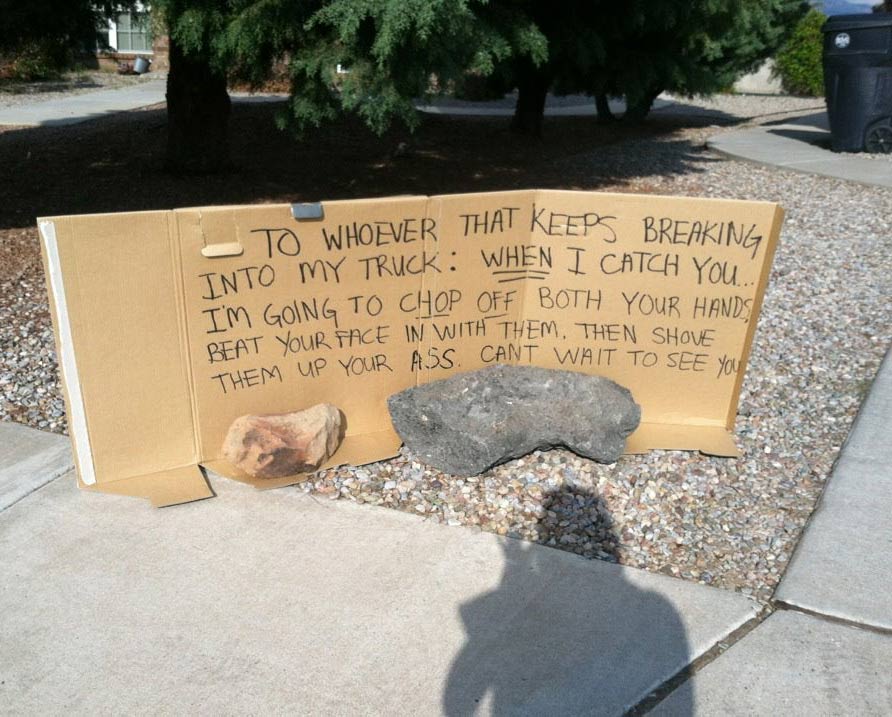 TO WHOEVER THAT KEEPS BREAKING
INTO MY TRUCK: WHEN I CATCH YOU...
I'M GOING TO CHOP OFF BOTH YOUR HANDS,
BEAT YOUR FACE IN WITH THEM, THEN SHOVE
THEM UP YOUR ASS. CANT WAIT TO SEE YOU